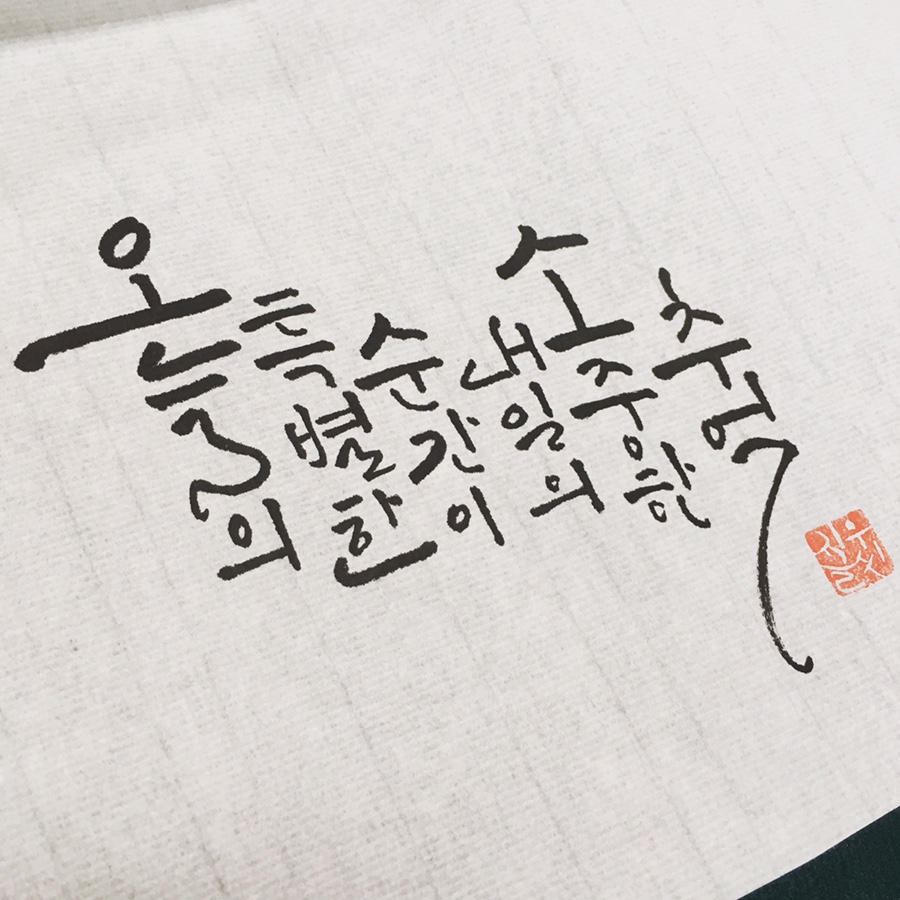 오늘의
특별한
순간이
내일의
소중한
추억